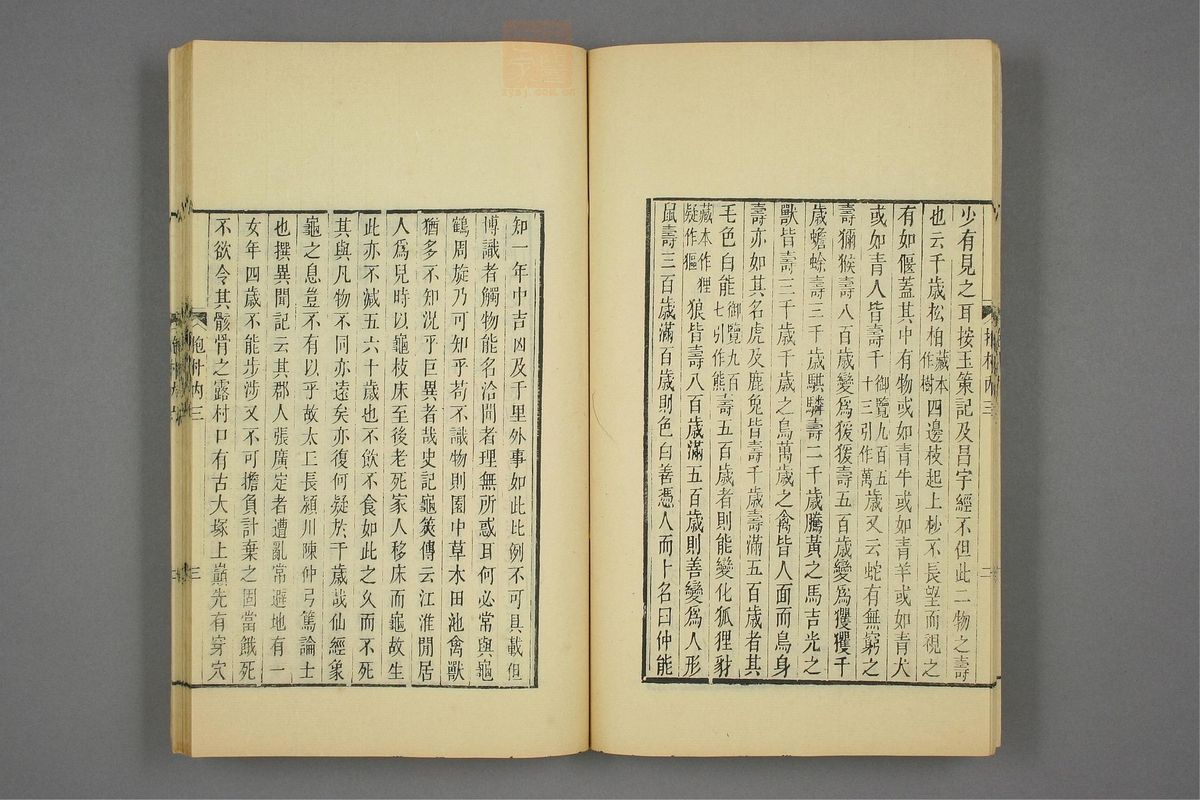 少有見之耳按玉策記及昌宇經不但此二物之壽
也云千歲松柏藏本作樹四邊枝起上杪不長望而視之
有如偃蓋其中有物或如青牛或如青羊或如青犬
或如青人皆壽千御覽九百五十三引作萬歲又云蛇有無窮之
壽獼猴壽八百歲變爲猨猨壽五百歲變爲玃玃千
歲蟾蜍壽三千歲騏驎壽二千歲騰黃之馬吉光之
獸皆壽三千歲千歲之鳥萬歲之禽皆人面而鳥身
壽亦如其名虎及鹿兔皆壽千歲壽滿五百歲者其
毛色白能御覽九百七引作熊壽五百歲者則能變化狐狸豺
藏本作狸疑作貙狼皆壽八百歲滿五百歲則善變爲人形
鼠壽三百歲滿百歲則色白善憑人而卜名曰仲能
二
知一年中吉凶及千里外事如此比例不可具載但
博識者觸物能名洽聞者理無所惑耳何必常與龜
鶴周旋乃可知乎苟不識物則園中草木田池禽獸
猶多不知況乎巨異者哉史記龜筴傳云江淮閒居
人爲兒時以龜枝床至後老死家人移床而龜故生
此亦不減五六十歲也不飲不食如此之久而不死
其與凡物不同亦遠矣亦復何疑於千歲哉仙經象
龜之息豈不有以乎故太工長潁川陳仲弓篤論士
也撰異聞記云其郡人張廣定者遭亂常避地有一
女年四歲不能步涉又不可擔負計棄之固當餓死
不欲令其骸骨之露村口有古大塚上巔先有穿穴
內三
三